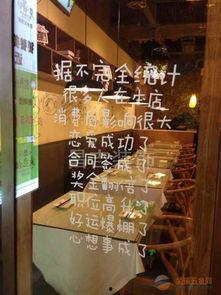 据不完全统计
很多人在本店
消费后影响很大
恋爱成功了
合同签成了
奖金翻倍了
职位高升了
好运爆棚了
心想事成了